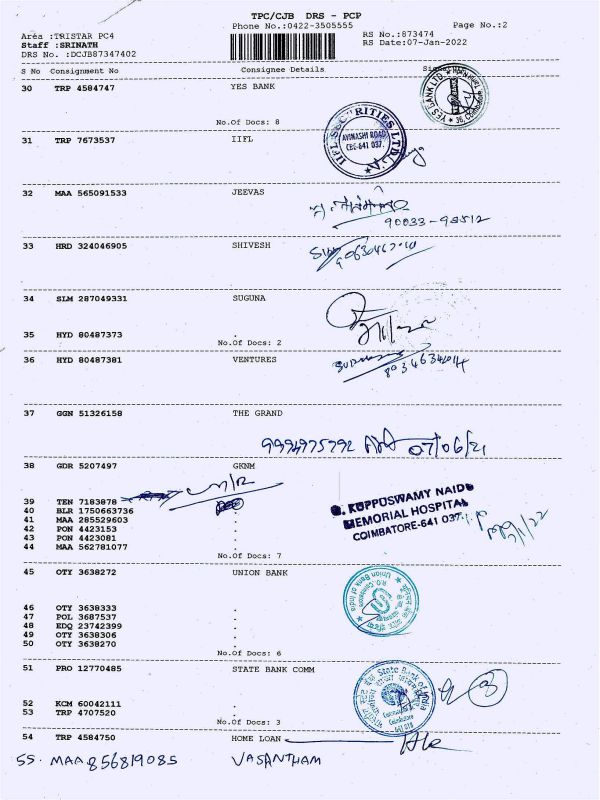 TPC/CJB DRS - PCP
Phone No.:0422-3505555 Page No.:2
Area :TRISTAR PC4 RS No.:873474
Staff :SRINATH RS Date:07-Jan-2022
DRS No. :DCJB87347402
S No Consignment No Consignee Details
30 TRP 4584747 YES BANK
YES BANK LTD
No.Of Docs: 8
31 TRP 7673537 IIFL
IIFL SECURITIES LTD
AVINASHI ROAD
CBE-641 037.
32 MAA 565091533 JEEVAS
33 HRD 324046905 SHIVESH
34 SLM 287049331 SUGUNA
35 HYD 80487373 .
No.Of Docs: 2
36 HYD 80487381 VENTURES
37 GGN 51326158 THE GRAND
9994975792 07/06/21
38 GDR 5207497 GKNM
39 TEN 7183878
40 BLR 1750663736 .
41 MAA 285529603 .
42 PON 4423153 .
43 PON 4423081 .
44 MAA 562781077 .
KUPPUSWAMY NAIDU
MEMORIAL HOSPITAL
COIMBATORE-641 037
No.Of Docs: 7
45 OTY 3638272 UNION BANK
Union Bank of India
46 OTY 3638333 .
47 POL 3687537 .
48 EDQ 23742399 .
49 OTY 3638306 .
50 OTY 3638270 .
No.Of Docs: 6
51 PRO 12770485 STATE BANK COMM
State Bank of India
Coimbatore
52 KCM 60042111 .
53 TRP 4707520 .
No.Of Docs: 3
54 TRP 4584750 HOME LOAN
55. MAA 856819085 VASANTHAM